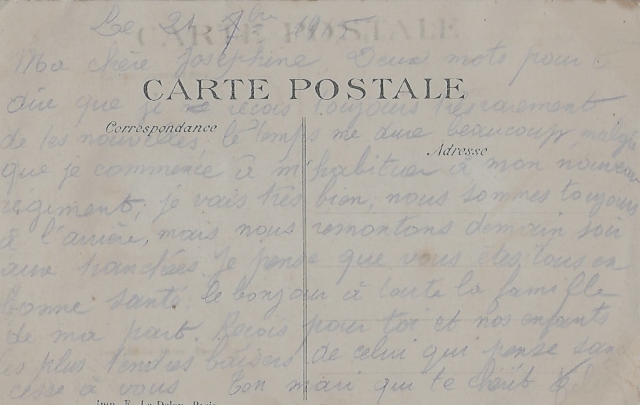 Le 21 7bre 19
Ma chère Joséphine Deux mots pour te
CARTE POSTALE
dire que je reçois toujours très rarement
Correspondance
de tes nouvelles, le temps me dure beaucoup, malgré
Adresse
que je commence à m'habituer à mon nouveau
régiment, je vais très bien, nous sommes toujours
à l'arrière, mais nous remontons demain soir
aux tranchées. Je pense que vous etes tous en
bonne santé. le bonjour à toute la famille
de ma part. Reçois pour toi et nos enfants
les plus tendres baisers de celui qui pense sans
cesse à vous Ton mari qui te chérit
Imp. E. Le Deley, Paris